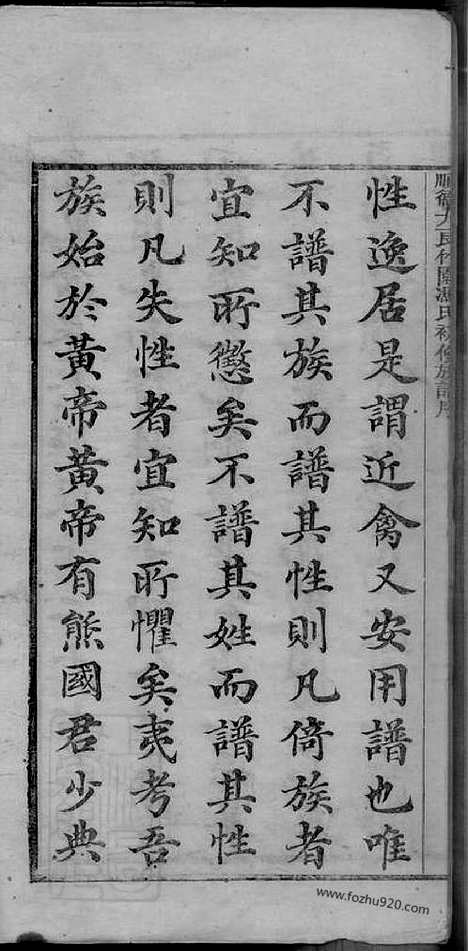 性逸居是謂近禽又安用譜也唯
不譜其族而譜其性則凡倚族者
宜知所懲矣不譜其姓而譜其性
則凡失性者宜知所懼矣夷考吾
族始於黃帝黃帝有熊國君少典
www.fozhu920.com